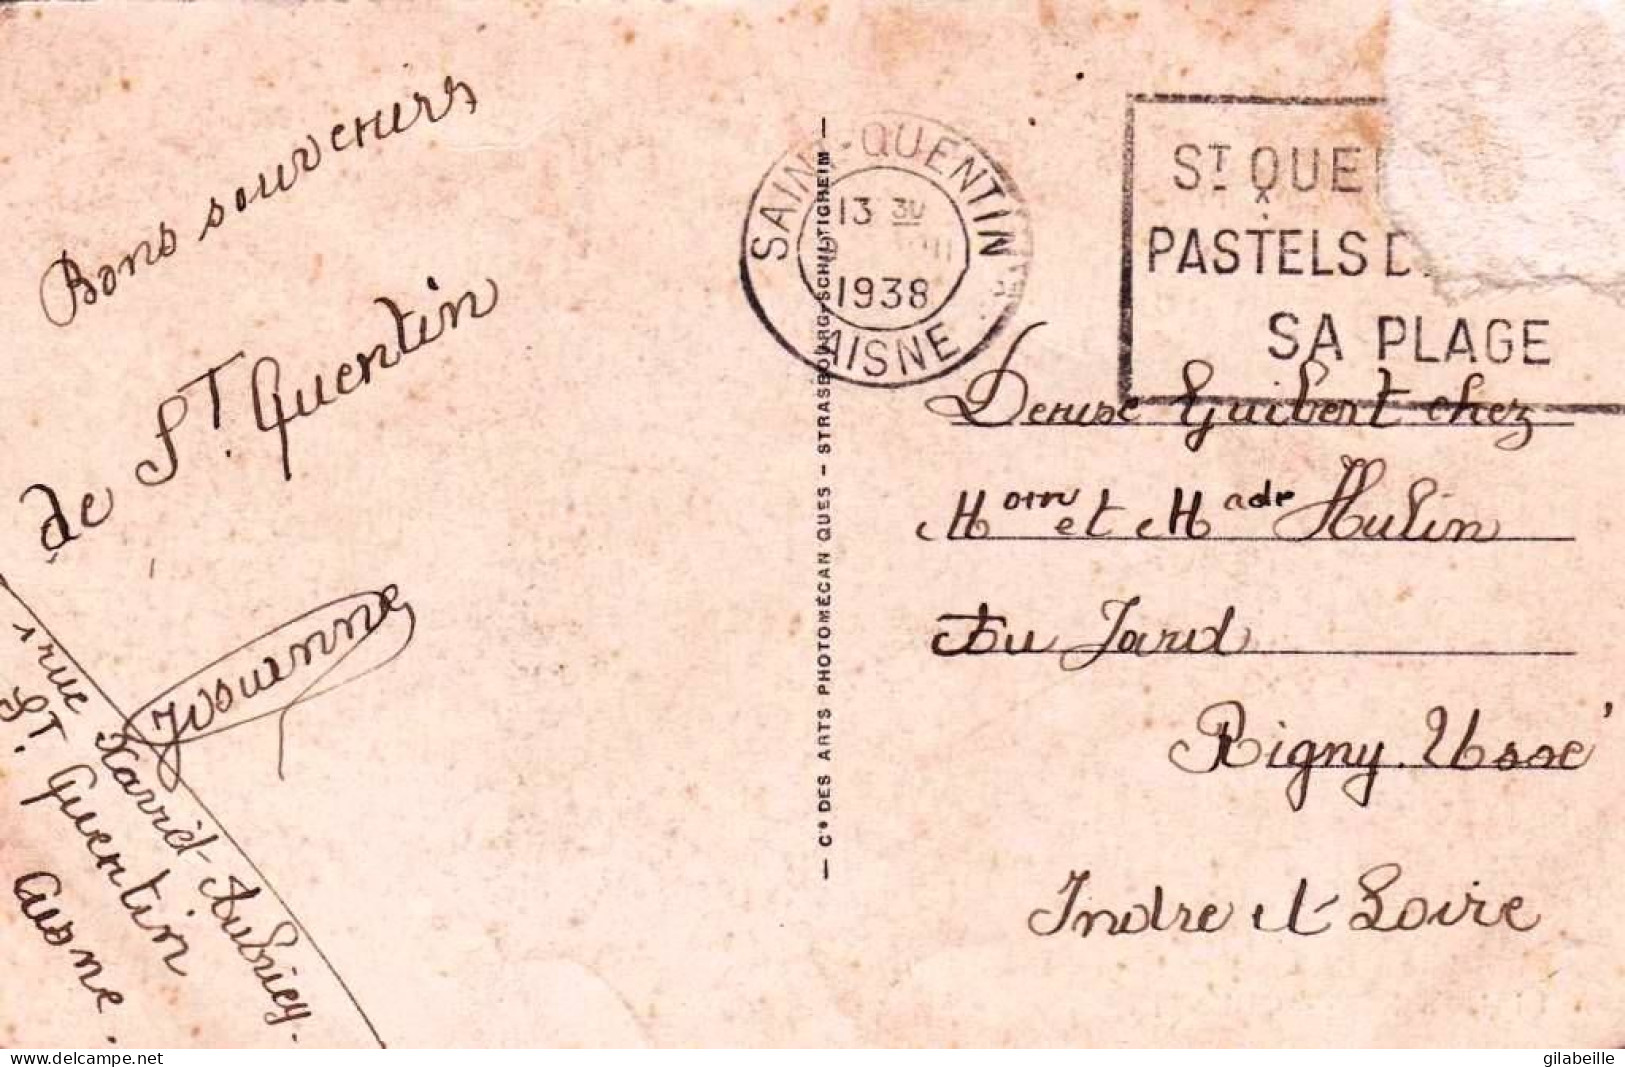 Bons souvenirs
de St. Quentin
Yvouanne
1 rue
St. Quentin
Aisne.
Cⁱᵉ DES ARTS PHOTOMÉCANIQUES - STRASBOURG-SCHILTIGHEIM
SAINT-QUENTIN
13 30
1938
AISNE
ST QUEN
PASTELS D
SA PLAGE
Denise Guibert chez
Mom et Madr Hulin
Au Jard
Rigny. Ussé
Indre et Loire
delcampe.net
gilabeille